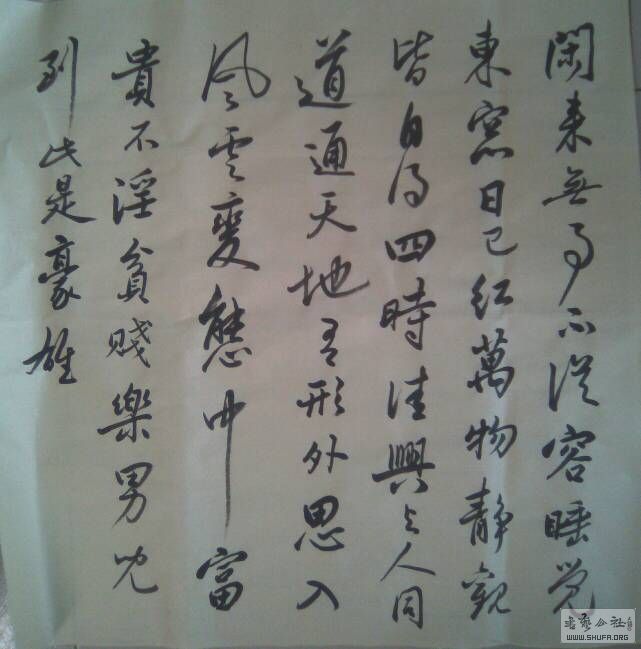 閑來無事不從容睡覺
東窓日已红萬物静觀
皆自得四時佳興与人同
道通天地有形外思入
風雲變態中富
貴不淫貧賤樂男兒
到此是豪雄
書藝公社
WWW.SHUFA.ORG